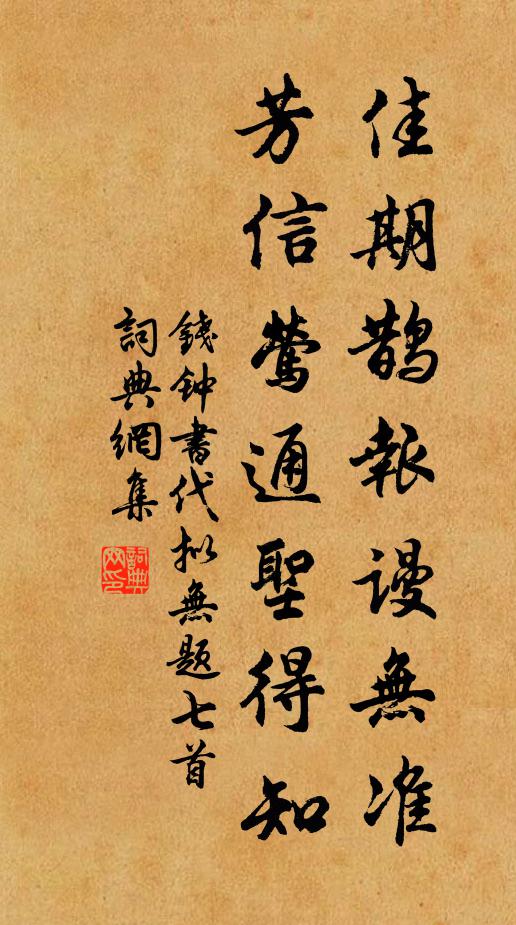 佳期鹊報謾無准
芳信鶯通聖得知
錢钟書代拟無题七首
詞典網集
詞典網印